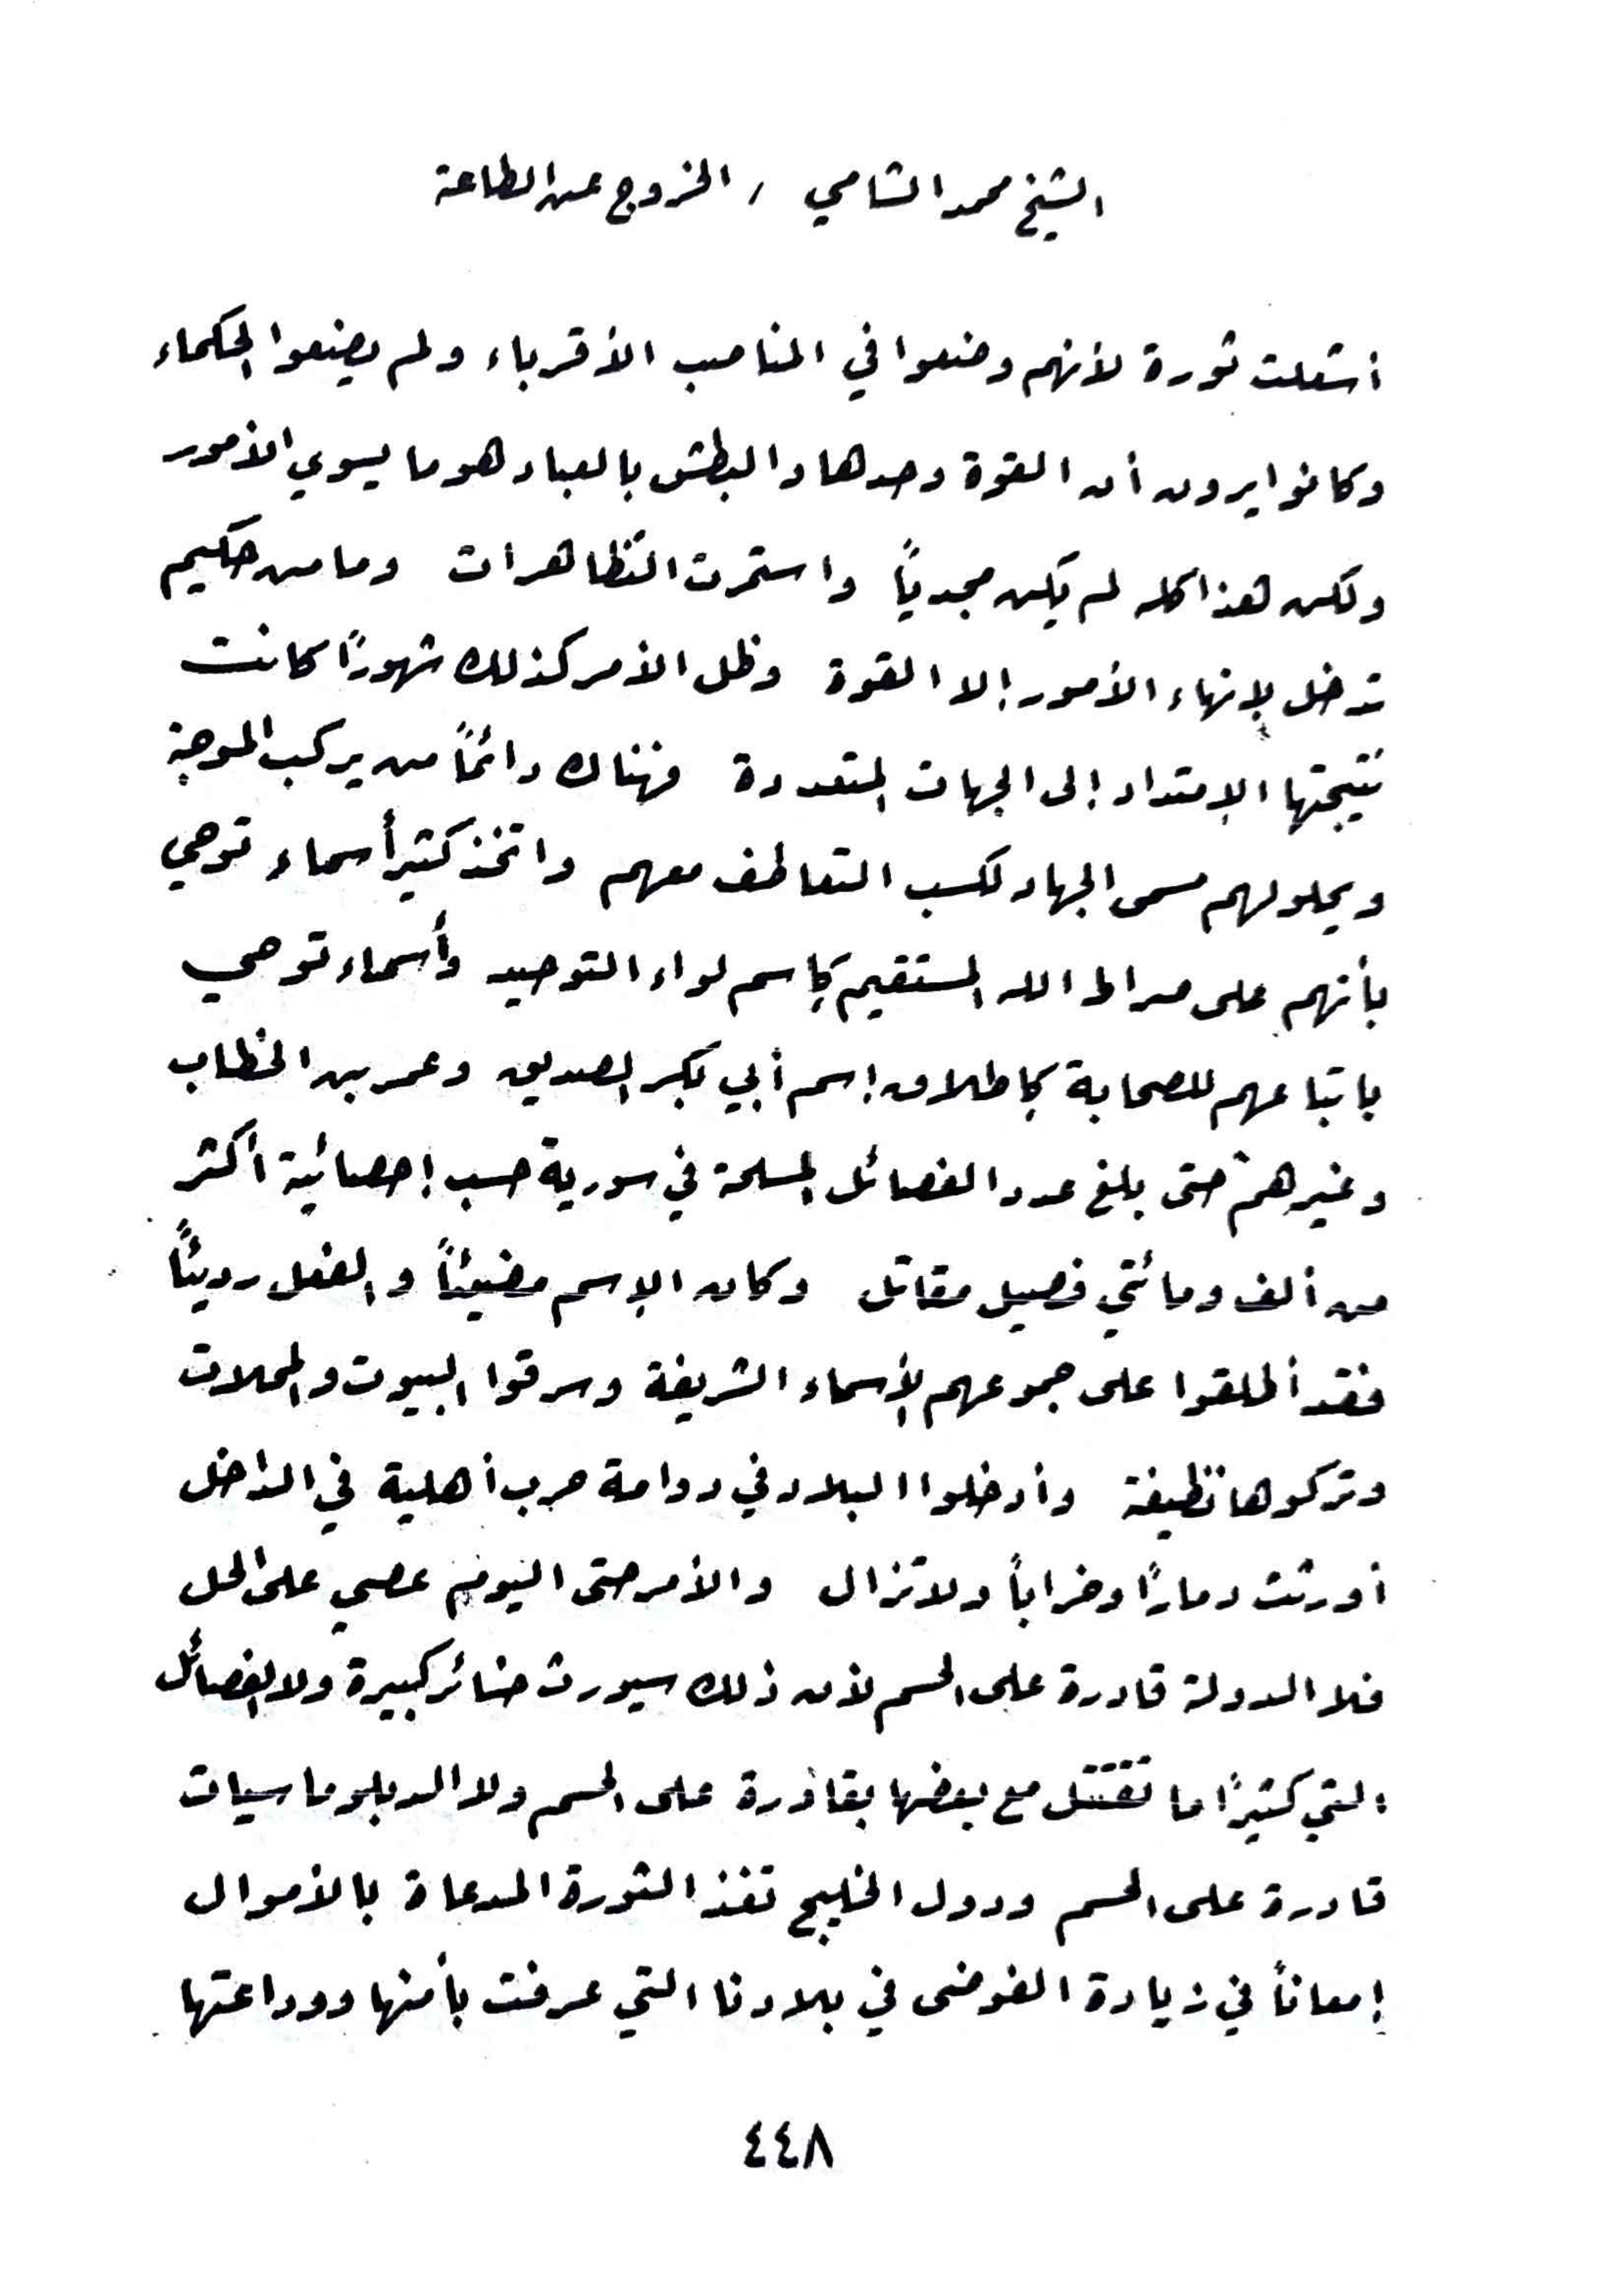 الشيخ محمد الشامي / الخروج عن الطاعة
أشعلت ثورة لأنهم وضعوا في المناصب الأقرباء ولم يضعوا الحكماء
وكانوا يرون أن القوة وحدها والبطش بالعباد هو ما يسوي الأمور
ولكن هذا كله لم يكن مجدياً واستمرت التظاهرات وما من حكيم
تدخل لإنهاء الأمور إلا القوة وظل الأمر كذلك شهورًا كانت
نتيجتها الإمتداد إلى الجهات المتعددة فهناك دائماً من يركب الموجة
ويحلو لهم مسمى الجهاد لكسب التعاطف معهم واتخذ كثير أسماء توحي
بأنهم على صراط الله المستقيم كإسم لواء التوحيد وأسماء توحي
باتباعهم للصحابة كإطلاق إسم أبي بكر الصديق وعمر بن الخطاب
وغيرهم حتى بلغ عدد الفصائل المسلحة في سورية حسب إحصائية أكثر
من ألف ومائتي فصيل مقاتل وكان الإسم مضيئاً والفعل رديئاً
فقد أطلقوا على جموعهم الأسماء الشريفة وسرقوا البيوت والمحلات
وتركوها نظيفة وأدخلوا البلاد في دوامة حرب أهلية في الداخل
أورثت دمارًا وخراباً ولا تزال والأمر حتى اليوم عصي على الحل
فلا الدولة قادرة على الحسم لأن ذلك سيورث خسائر كبيرة ولا الفصائل
التي كثيرًا ما تقتتل مع بعضها بقادرة على الحسم ولا الدبلوماسيات
قادرة على الحسم ودول الخليج تغذ الثورة المدعاة بالأموال
إمعاناً في زيادة الفوضى في بلادنا التي عرفت بأمنها ووداعتها
٤٤٨